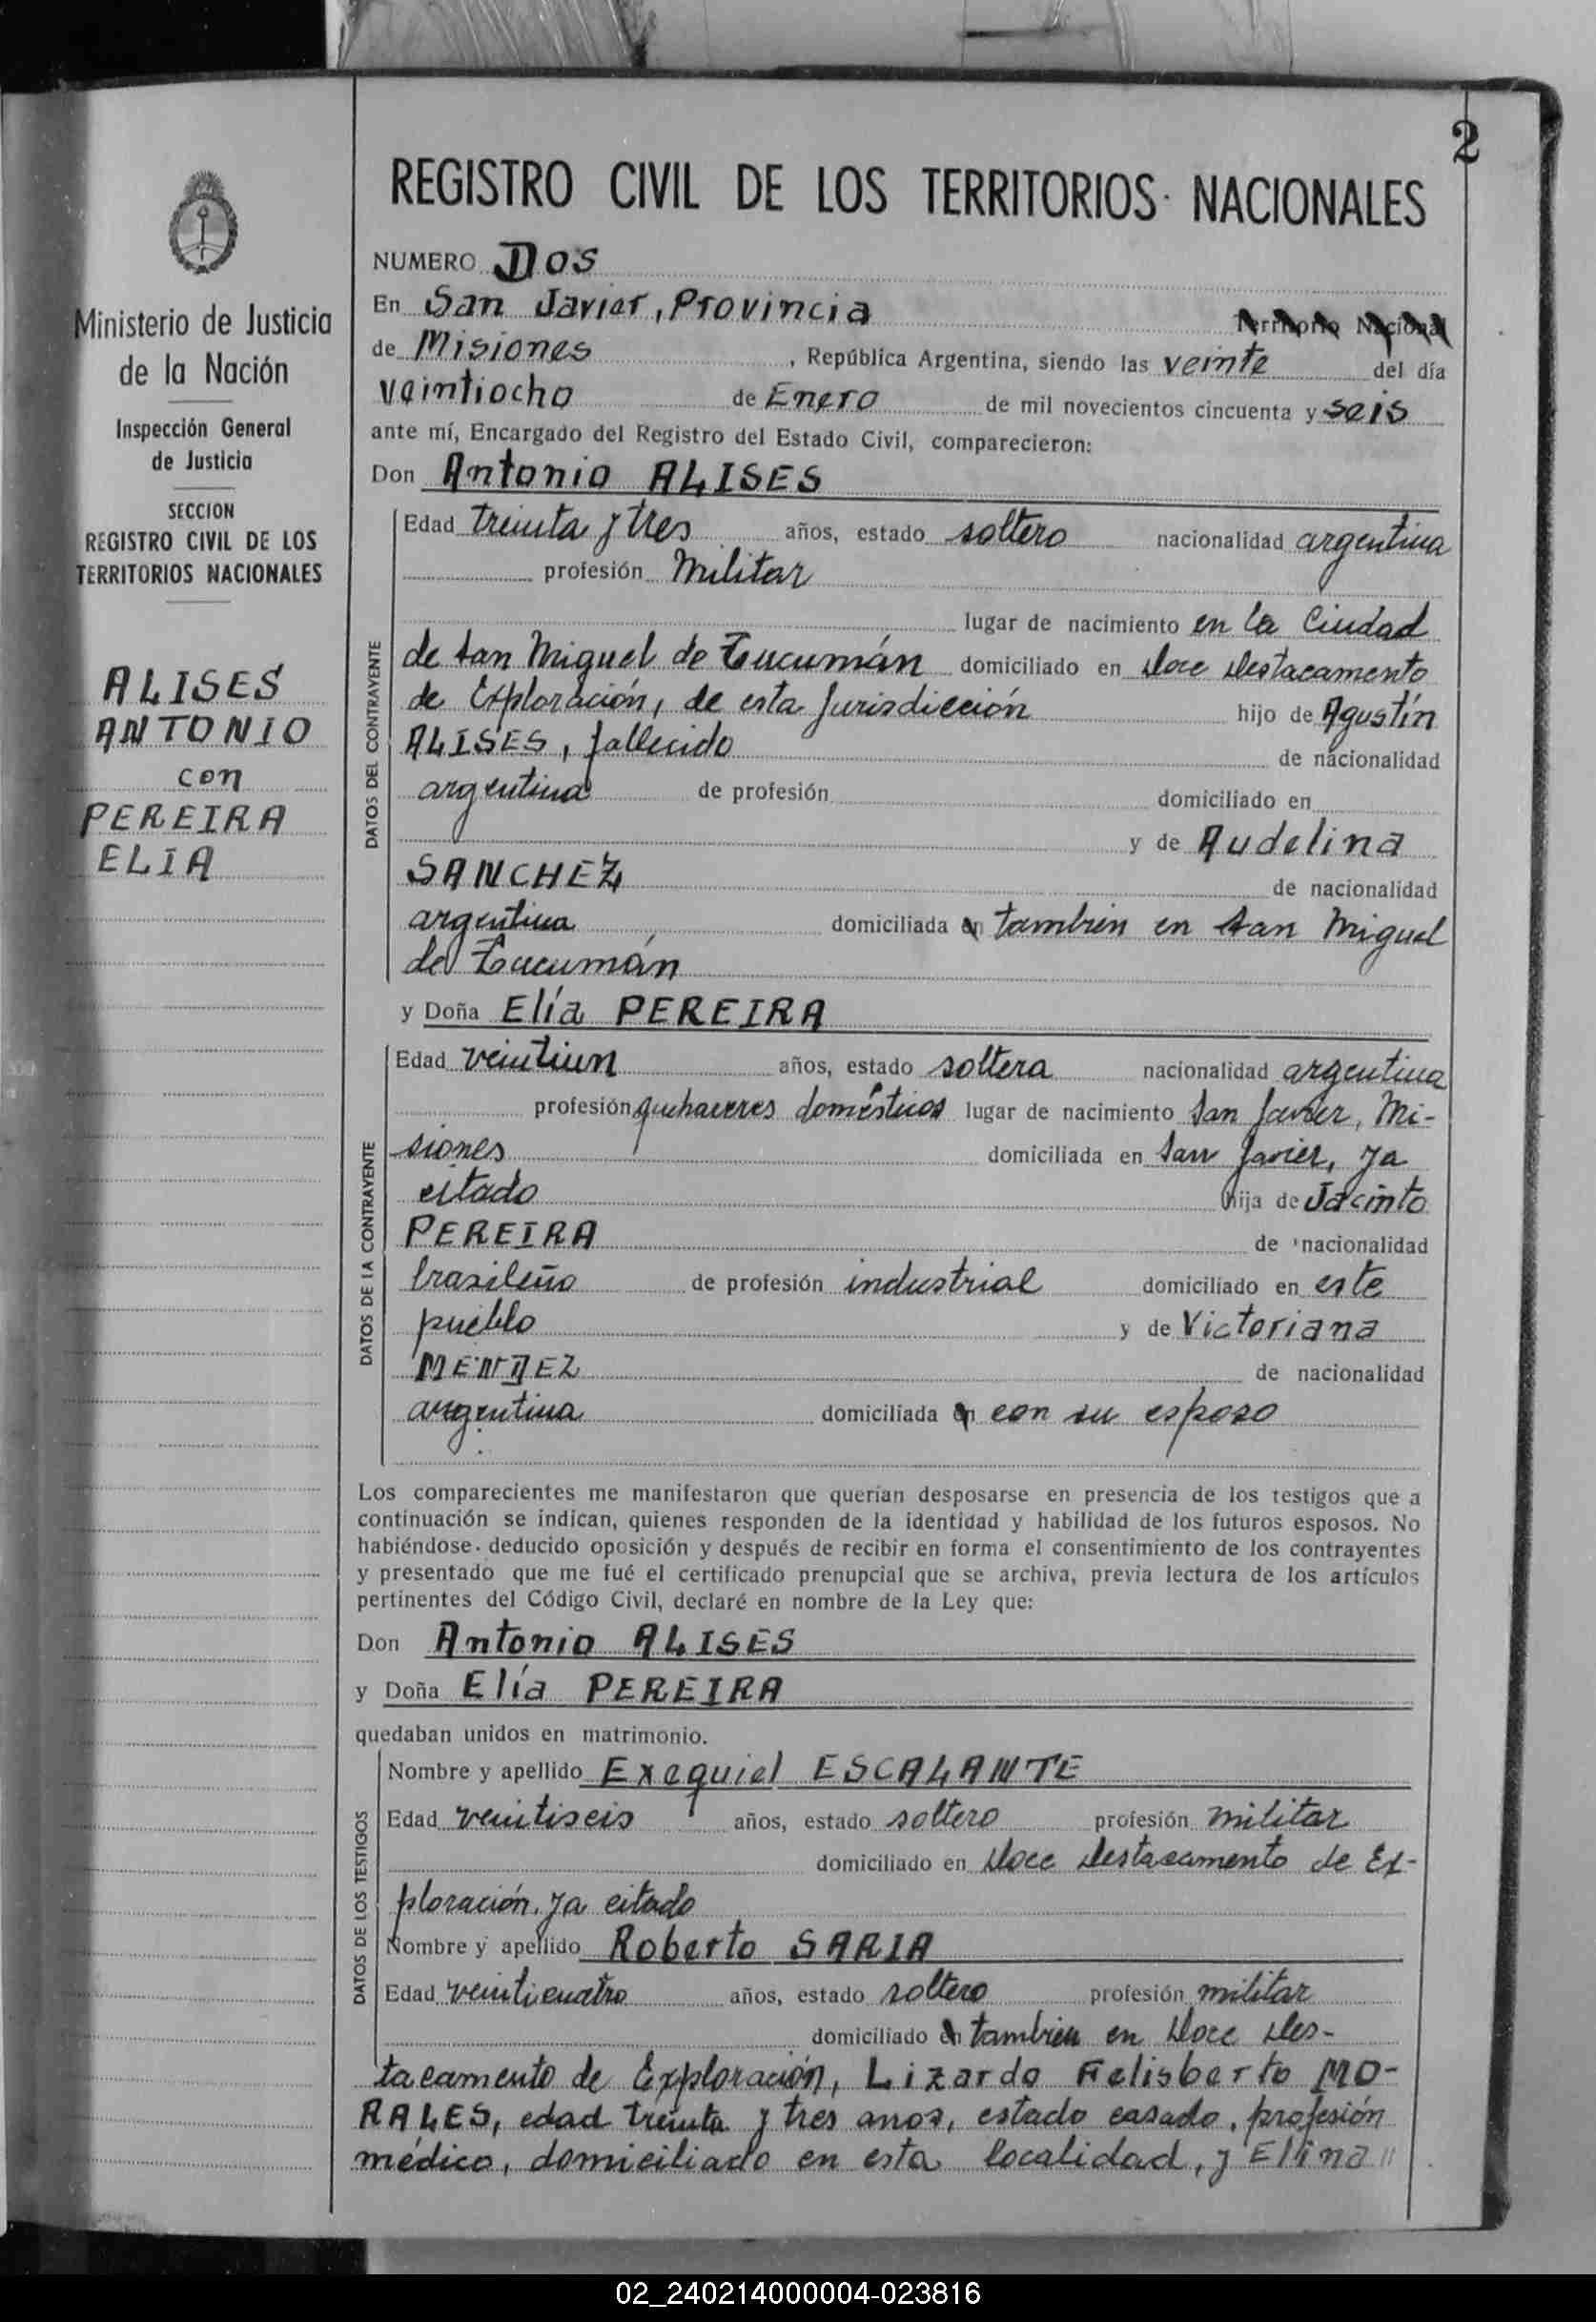 2
REGISTRO CIVIL DE LOS TERRITORIOS NACIONALES
Ministerio de Justicia
de la Nación
Inspección General
de Justicia
SECCION
REGISTRO CIVIL DE LOS
TERRITORIOS NACIONALES
ALISES
ANTONIO
con
PEREIRA
ELIA
NUMERO Dos
En San Javier, Provincia Territorio Nacional
de Misiones, República Argentina, siendo las veinte del día
veintiocho de Enero de mil novecientos cincuenta y seis
ante mí, Encargado del Registro del Estado Civil, comparecieron:
Don Antonio ALISES
DATOS DEL CONTRAYENTE
Edad treinta y tres años, estado soltero nacionalidad argentina
profesión Militar
lugar de nacimiento en la Ciudad
de San Miguel de Tucumán domiciliado en Doce Destacamento
de Exploración, de esta Jurisdicción hijo de Agustín
ALISES, fallecido de nacionalidad
argentina de profesión domiciliado en
y de Audelina
SANCHEZ de nacionalidad
argentina domiciliada en también en San Miguel
de Tucumán
y Doña Elía PEREIRA
DATOS DE LA CONTRAYENTE
Edad veintiun años, estado soltera nacionalidad argentina
profesión quehaceres domésticos lugar de nacimiento San Javier, Mi-
siones domiciliada en San Javier, ya
citado hija de Jacinto
PEREIRA de nacionalidad
brasileño de profesión industrial domiciliado en este
pueblo y de Victoriana
MENDEZ de nacionalidad
argentina domiciliada en con su esposo
Los comparecientes me manifestaron que querían desposarse en presencia de los testigos que a
continuación se indican, quienes responden de la identidad y habilidad de los futuros esposos. No
habiéndose deducido oposición y después de recibir en forma el consentimiento de los contrayentes
y presentado que me fué el certificado prenupcial que se archiva, previa lectura de los artículos
pertinentes del Código Civil, declaré en nombre de la Ley que:
Don Antonio ALISES
y Doña Elía PEREIRA
quedaban unidos en matrimonio.
DATOS DE LOS TESTIGOS
Nombre y apellido Exequiel ESCALANTE
Edad veintiseis años, estado soltero profesión militar
domiciliado en Doce Destacamento de Ex-
ploración, ya citado
Nombre y apellido Roberto SARIA
Edad veinticuatro años, estado soltero profesión militar
domiciliado en también en Doce Des-
tacamento de Exploración, Lizardo Felisberto MO-
RALES, edad treinta y tres anos, estado casado, profesión
médico, domiciliado en esta localidad, y Elina "
02_240214000004-023816